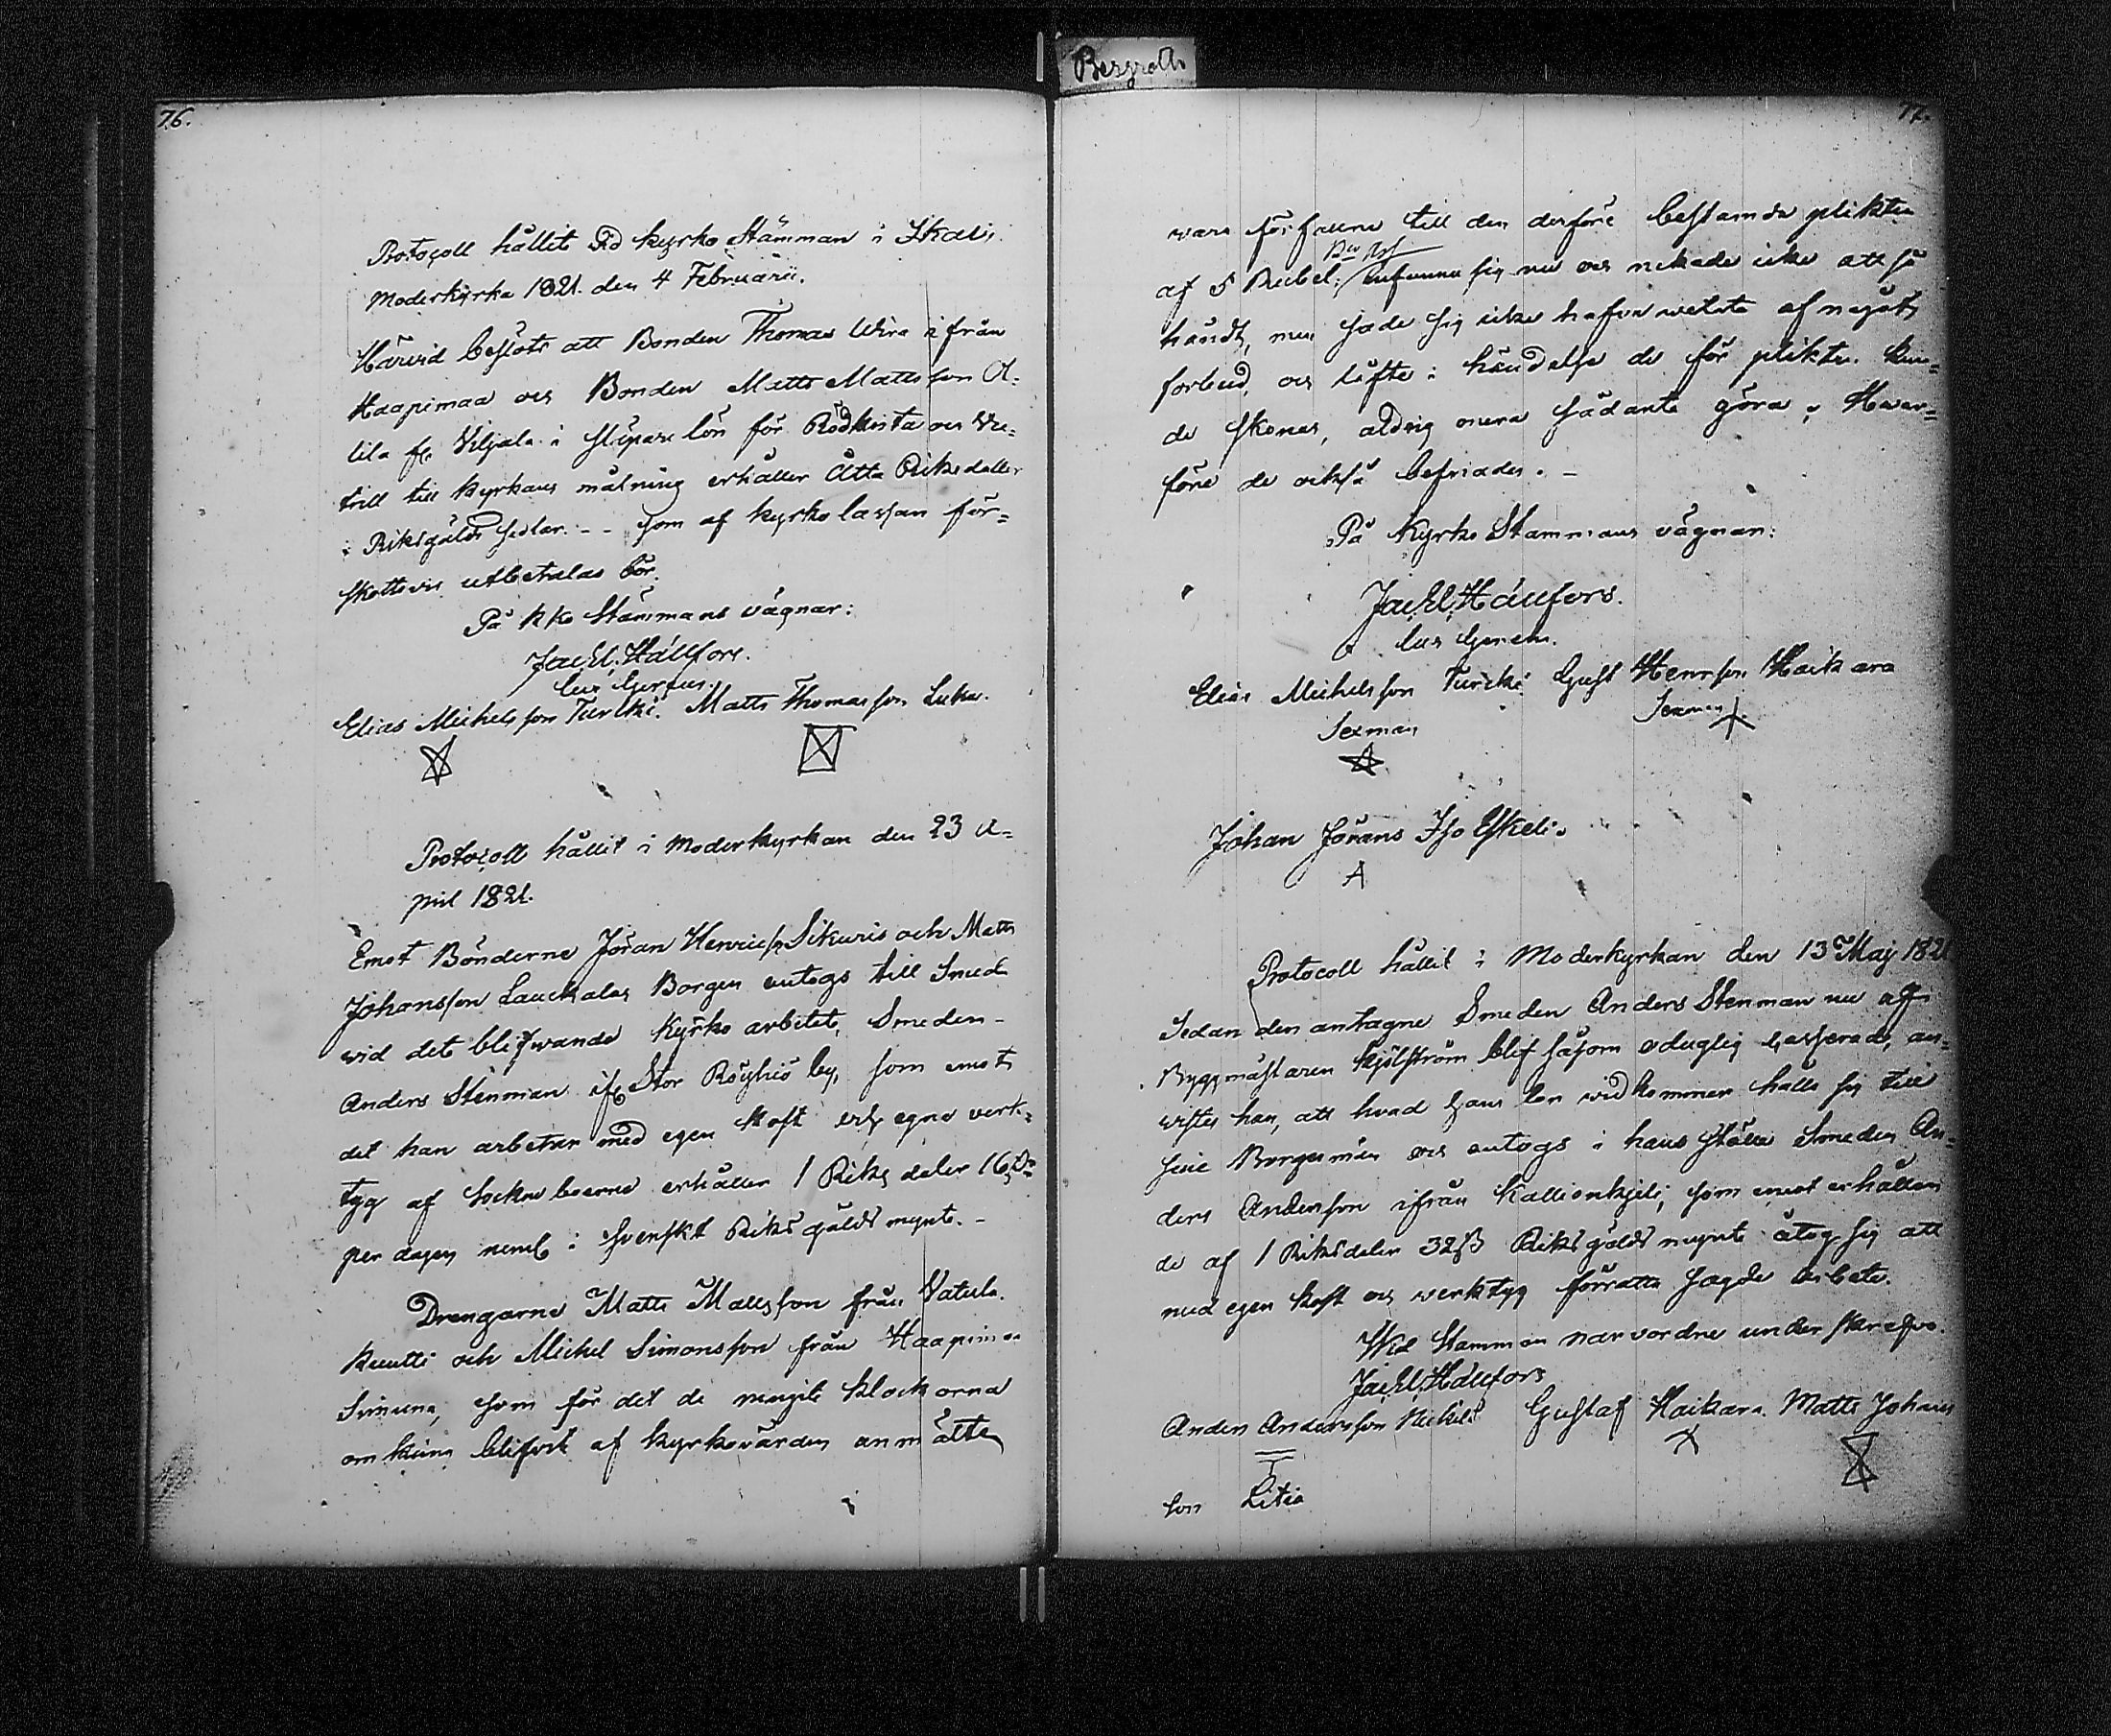 Bergroth
76.
Protocoll hållit wid kyrko Stämman i Ikalis
Moderkyrka 1821. den 4 Februarii.
Härvid beslöts att Bonden Thomas Wira ifrån
Haapimaa och Bonden Matts Mattsson A=
lila fr. Viljala i släpare lön för Rödkrita och Vic=
trill till kyrkans målning erhåller Åtta Riksdaler
i Riksgälds sedlar. - - som af kyrko cassan för=
skottsvis utbetalas bör.
På kko Stämmans vägnar:
Jac. El. Hällfors.
Matts Thomasson Luha.
Elias Michelsson Turkki.
Protocoll hållit i Moderkyrkan den 23 A=
pril 1821.
Emot Bönderne Jöran Henricss Sikuris och Matts
Johansson Lauckalas Borgen antogs till Smed
wid det blifwande Kyrko arbetet, Smeden
Anders Stenman ifr Stor Röyhiö by, som emot
det han arbetar med egen kost och egna verk=
tyg af Socknеboerne erhåller 1 Riksdaler 16 s
per dagen neml i Svenskt Riksgälds mynt. -
Drengarne Matts Mattsson från Vatula
Kuutti och Michel Simonsson från Haapimaa
Simuna, som för det de ringt klockorna
omkring blifvit af kyrkovärden anmälte
77.
vara förfallne till den derföre bestämda plikten
af 5 Rubel, infunno sig nu och nekade icke att så
händt, men sade sig icke hafva wetat af något
förbud, och löfte i händelse de för plikten kun=
de skonas, aldrig mera sådant göra; Hvar=
före de också befriades. -
På Kyrko Stämmans vägnar:
Jac. El. Hällfors.
Elias Michelsson Turkki Gust Henrsson Haikara
Sexman Sexman
Johan Jörans Iso Eskeli.
Protocoll hållit i Moderkyrkan den 13 Maj 1821
Sedan den antagne Smeden Anders Stenman nu af
Byggmästaren Kjölström blif såsom oduglig casserad, an=
wistes han, att hvad hans lön widkommer hålla sig till
sine Borgesmän och antogs i hans ställe Smeden An=
ders Andersson ifrån Kallionkjeli, som emot erhållan
de af 1 Riksdaler 32 s Riksgälds mynt åtog sig att
med egen kost och werktyg förrätta sagde arbete.
Wid Stämman närvordne underskrefvo.
Jac. El. Hällfors
Anders Andersson Gustaf Haikara. Matts Johans
son Litia